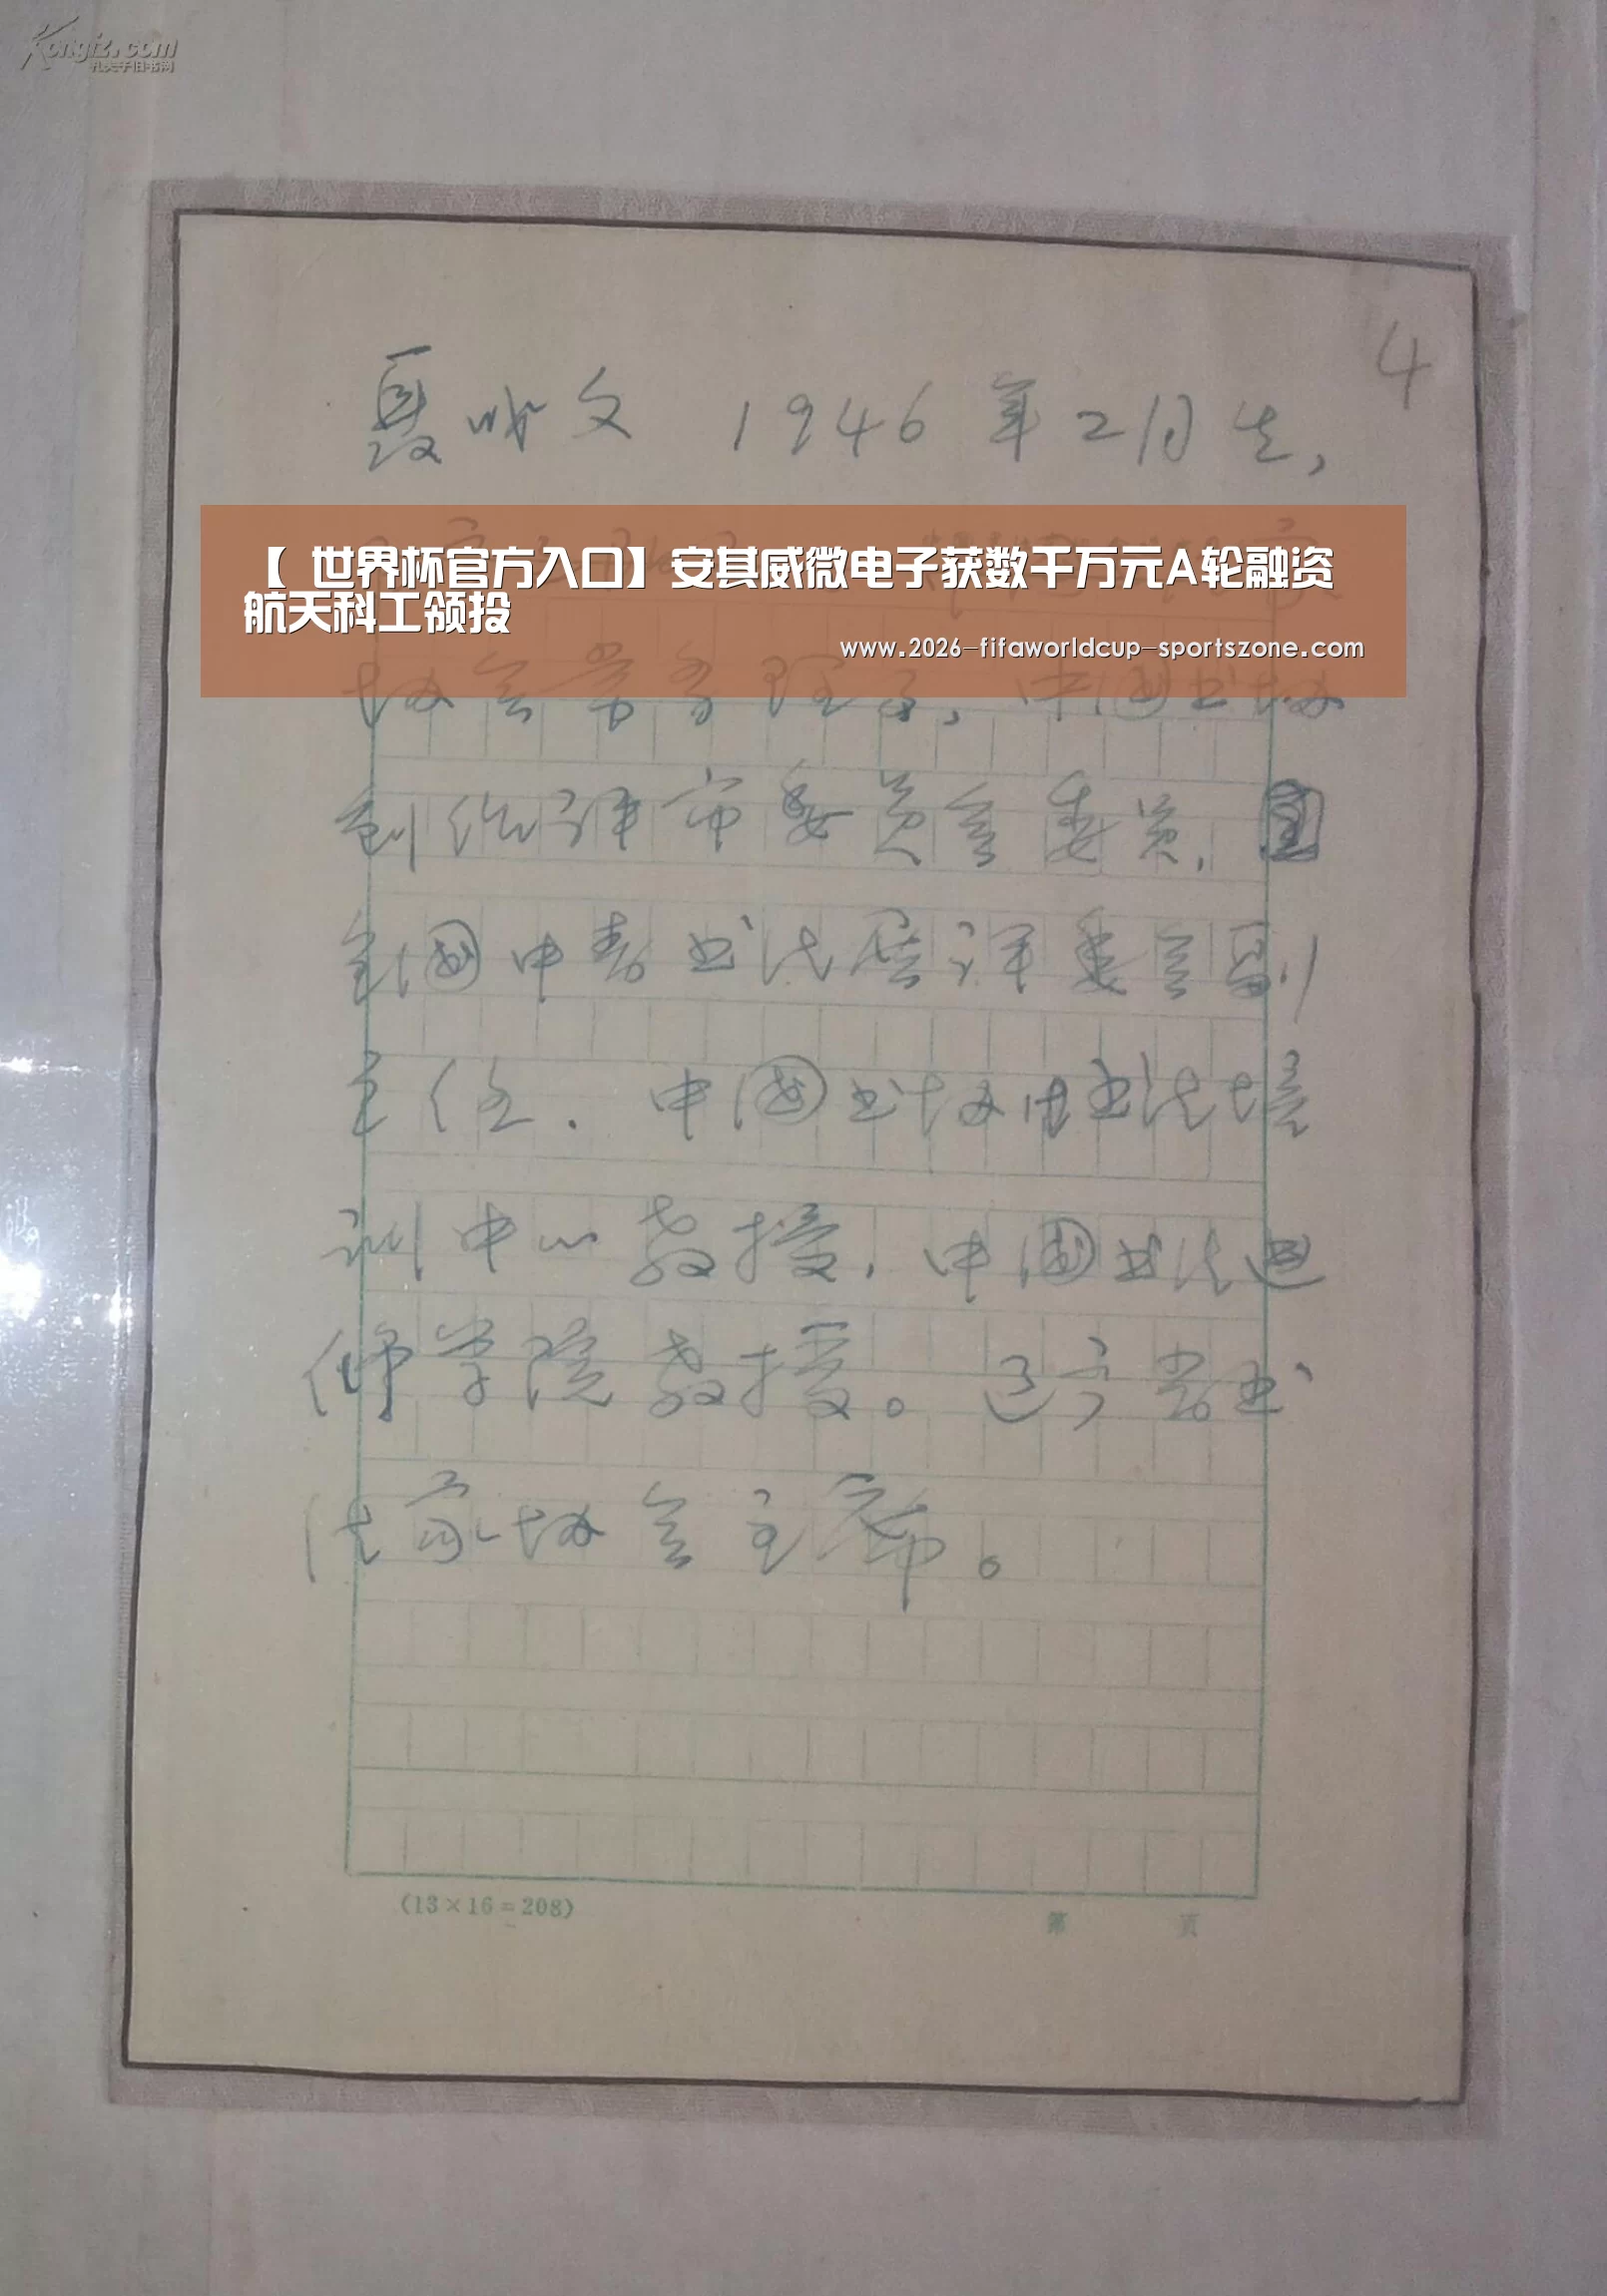 Kongfz.com
孔夫子旧书网
4
聂成文 1946年2月生,
【 世界杯官方入口】安其威微电子获数千万元A轮融资
航天科工领投
www.2026-fifaworldcup-sportszone.com
协会常务理事，中国书协
创作评审委员会委员，
全国中青书法展评委会副
主任．中国书协书法培
训中心教授，中国书法进
修学院教授。辽宁省书
法家协会主席。
(13×16=208)
第 页